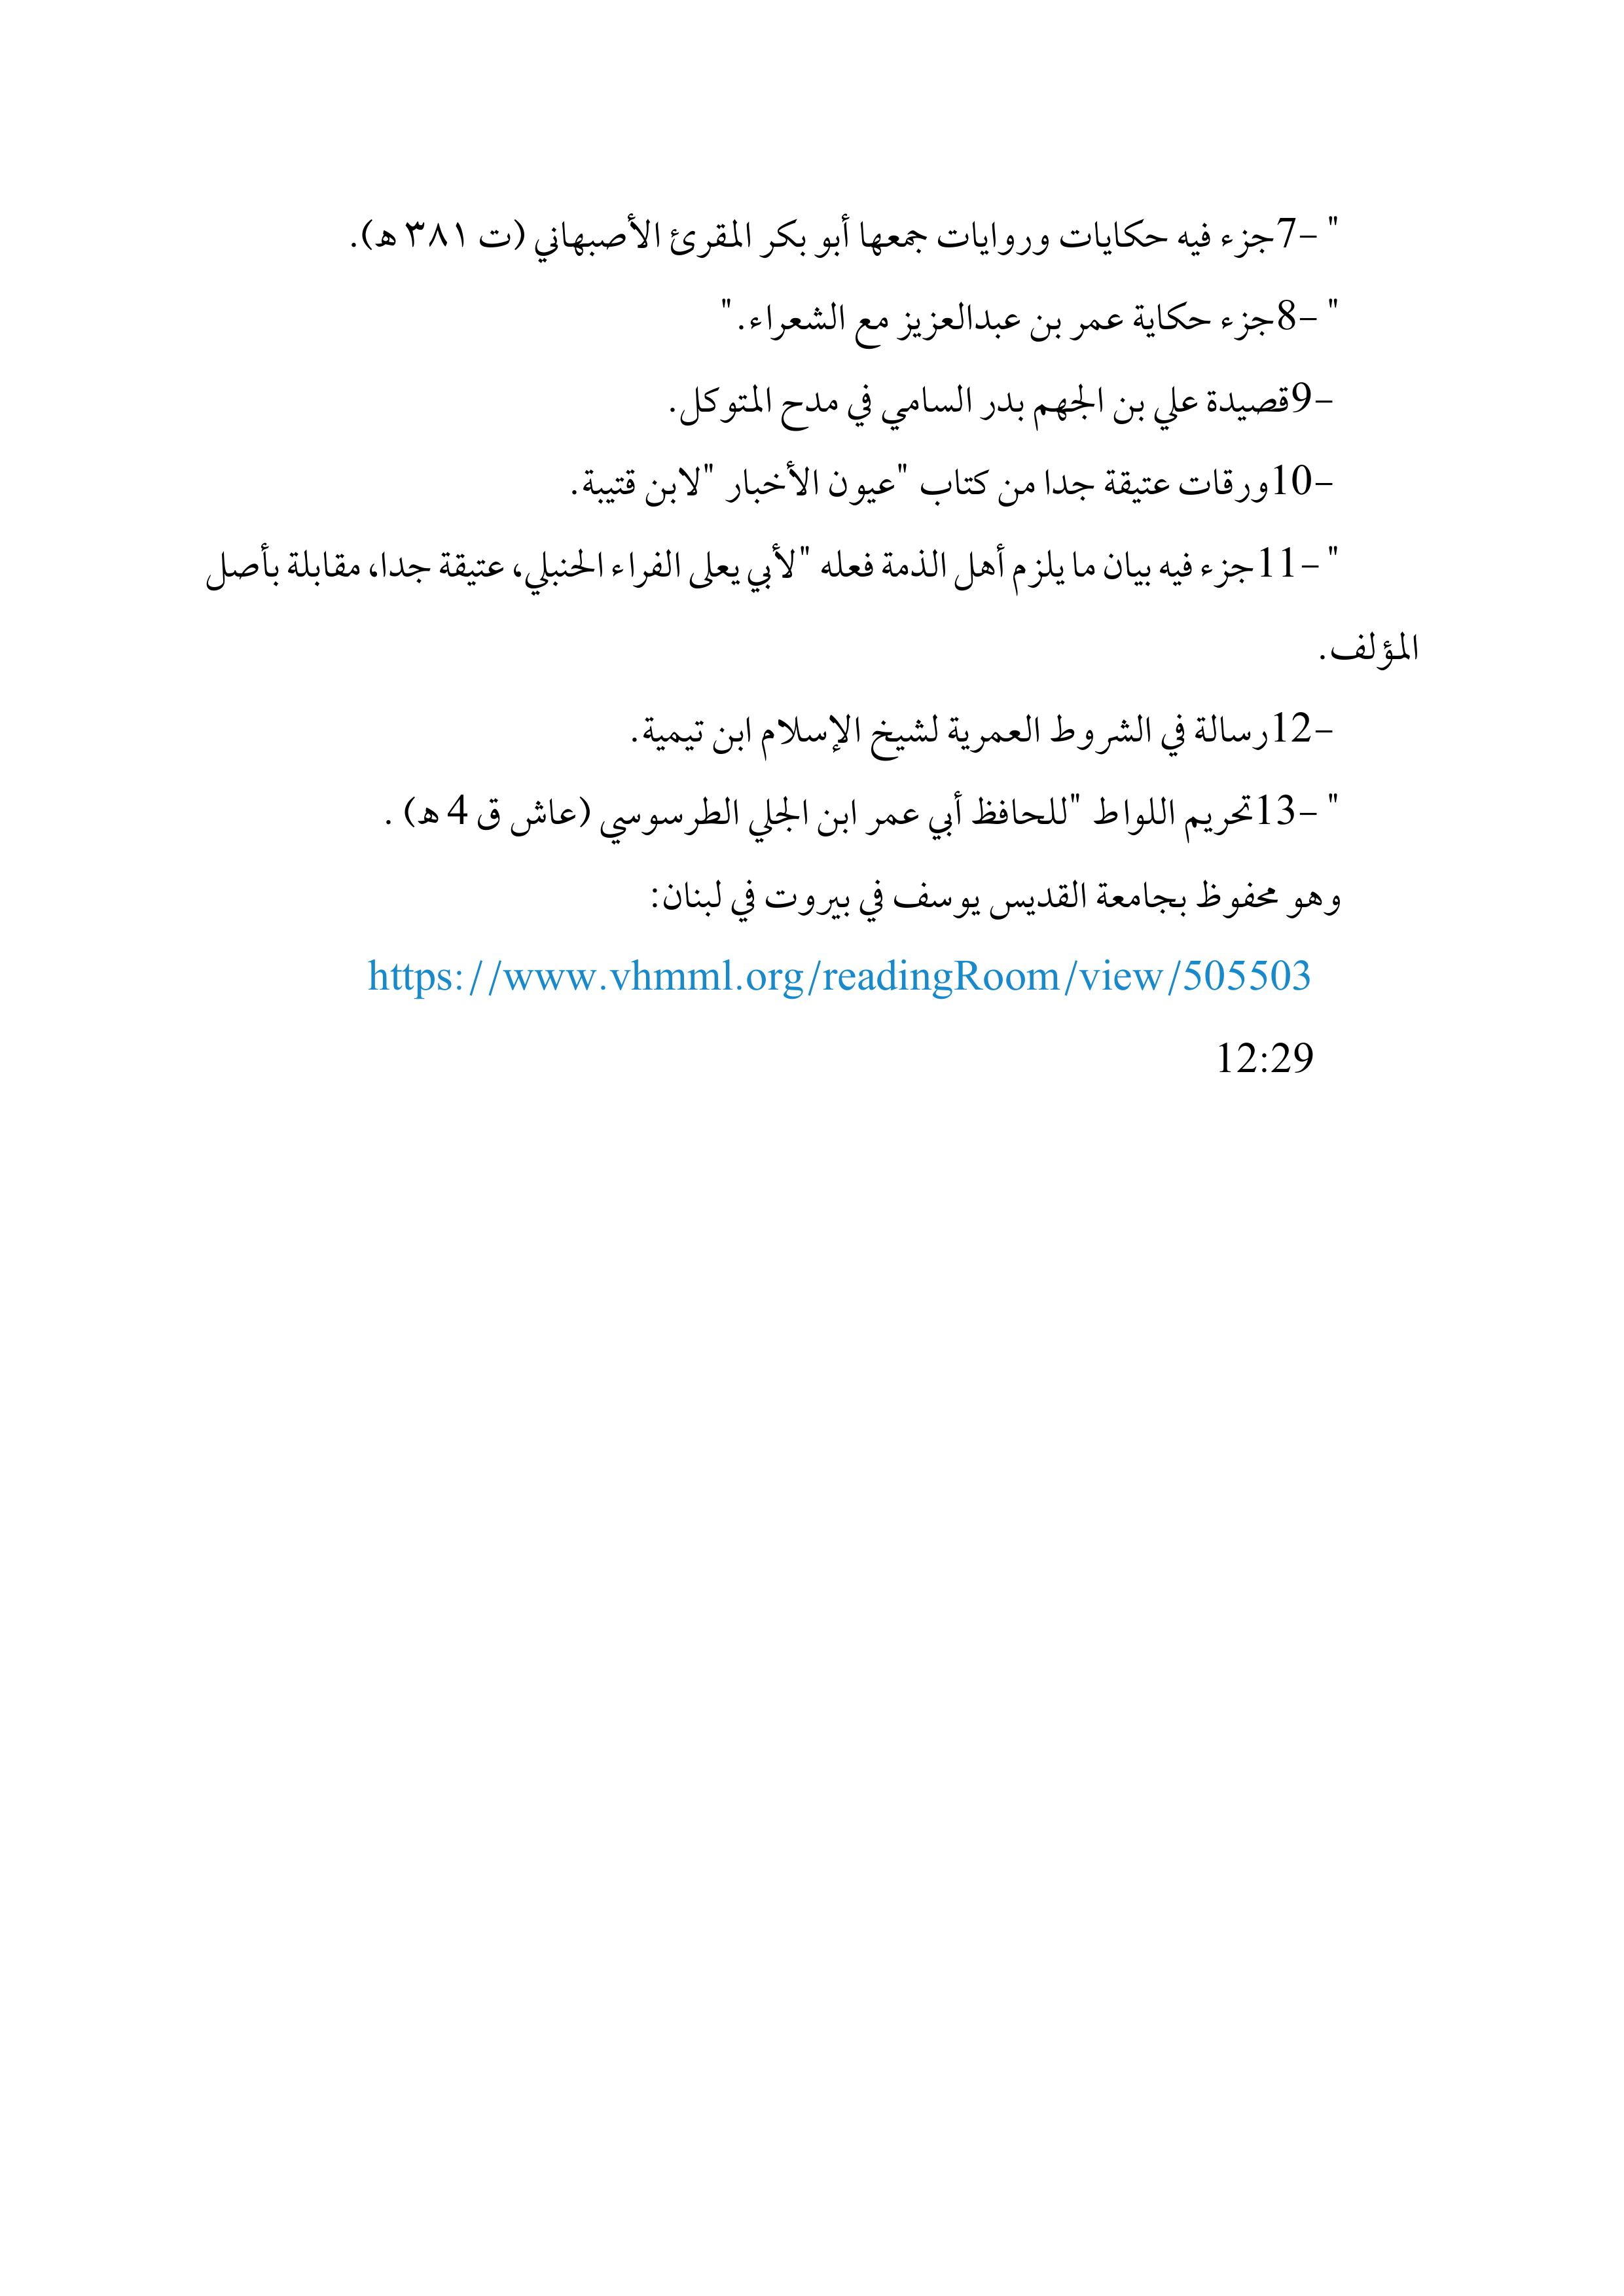 " -7جزء فيه حكايات وروايات جمعها أبو بكر المقرئ الأصبهاني (ت ٣٨١ ه).
" -8جزء حكاية عمر بن عبدالعزيز مع الشعراء."
-9قصيدة علي بن الجهم بدر السامي في مدح المتوكل.
-10ورقات عتيقة جدا من كتاب "عيون الأخبار "لابن قتيبة.
" -11جزء فيه بيان ما يلزم أهل الذمة فعله "لأبي يعلى الفراء الحنبلي، عتيقة جدا، مقابلة بأصل
المؤلف.
-12رسالة في الشروط العمرية لشيخ الإسلام ابن تيمية.
" -13تحريم اللواط "للحافظ أبي عمر ابن الجلي الطرسوسي (عاش ق 4 ه) .
وهو محفوظ بجامعة القديس يوسف في بيروت في لبنان:
https://www.vhmml.org/readingRoom/view/505503
12:29